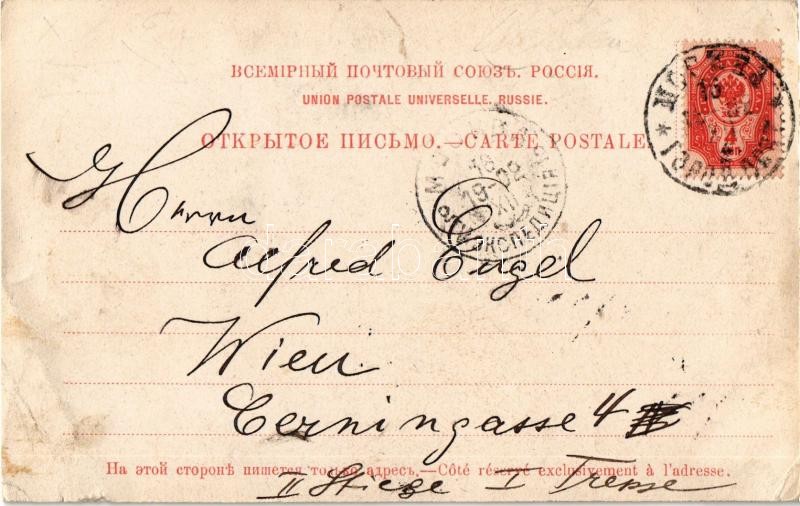 ВСЕМІРНЫЙ ПОЧТОВЫЙ СОЮЗЪ. РОССІЯ.
UNION POSTALE UNIVERSELLE. RUSSIE.
ОТКРЫТОЕ ПИСЬМО.—CARTE POSTALE
МОСКВА
Herrn
Alfred Engel
Wien
Cerningasse 4
На этой сторонѣ пишется только адресъ.—Côté réservé exclusivement à l'adresse.
II Stiege I Treppe